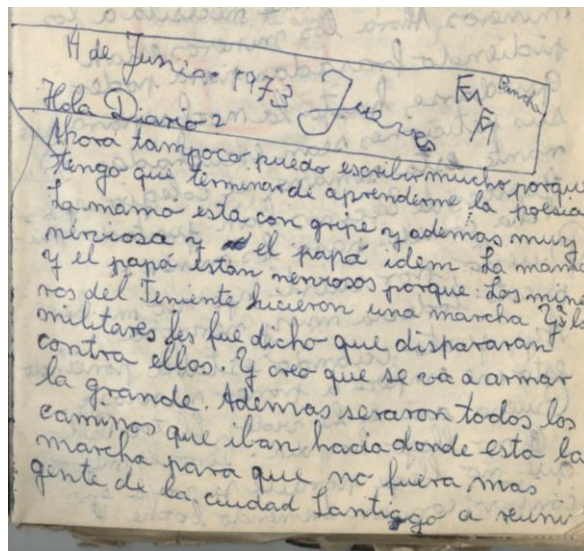 de Junio. 1973 Jueves
Hola Diario
Ahora tampoco puedo escribir mucho porque
tengo que terminar de aprenderme la poesia
La mamá esta con gripe y ademas muy
nerviosa y el papá idem La mamá
y el papá estan nerviosos porque: Los mine
ros del Teniente hicieron una marcha Y a lo
militares les fue dicho que dispararan
contra ellos. Y creo que se va a armar
la grande. Ademas seraron todos los
caminos que iban hacia donde esta la
marcha para que no fuera mas
gente de la ciudad Santiago a reunir